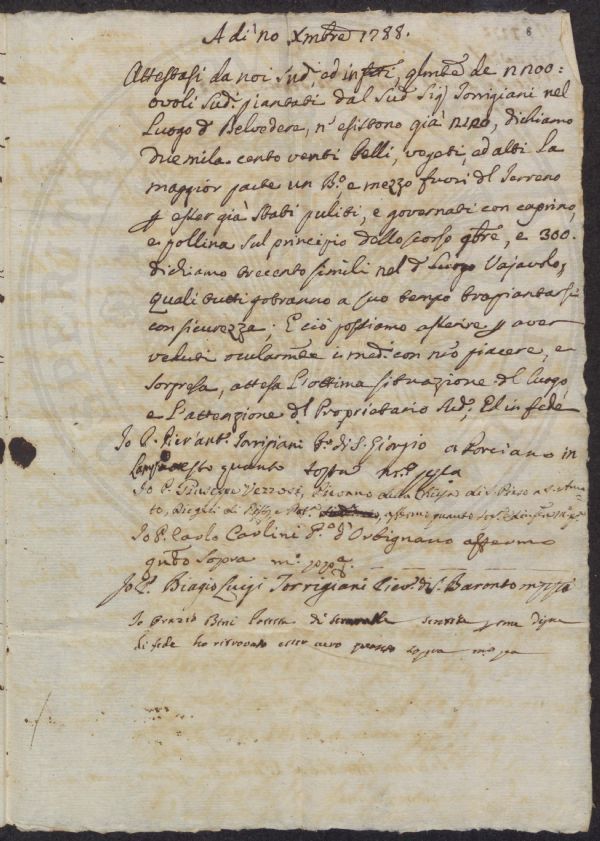 A di no Xmbre 1788.
8
Attestasi da noi Sud.i ed infti, qlmte de n 2200:
ovoli Sud.i piantati dal Sud.o Sig.r Torrigiani nel
Luogo d.o Belvedere, n'esistono già 2120, diciamo
Due mila cento venti belli, vegeti, ed alti la
maggior parte un B.o e mezzo fuori del Terreno
p esser già stati puliti, e governati con caprino,
e pollina sul principio dello scorso 9bre, e 300.
diciamo trecento simili nel d.o Luogo Vajavolo,
quali tutti potranno a suo tempo trapiantarsi
con sicurezza; E ciò possiamo asserire p aver
veduti ocularmte i med.i con nro piacere, e
sorpresa, attesa l'ottima situazione del luogo,
e l'attenzione del Proprietario Sud.o, Ed in fede
Io P. Pier Ant.o Torrigiani P.e di S. Giorgio a Porciano in
attesto quanto sopra m.o pp.a
Io P. Giuseppe Vezzosi, della Chiesa di S.
affermo quanto
Io P. Carlo Carlini P.o d'Orbignano affermo
qnto sopra m.o pp.a
Io P. Biagio Luigi Torrigiani Piev.o di S. Baronto m pp.a
Io Orazio Beni Potestà di Serravalle sentite persone degne
di fede ho ritrovato esser vero quanto sopra m.o pp.a